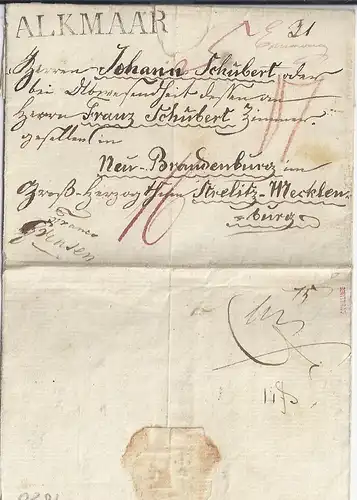 ALKMAAR
21
Herren Johann Schubert, oder
bei Abwesendheit dessen an
Herrn Franz Schubert Zimmer-
gesellen in
Neu-Brandenburg im
Groß-Herzogthum Strelitz-Mecklen-
burg
Franco
75